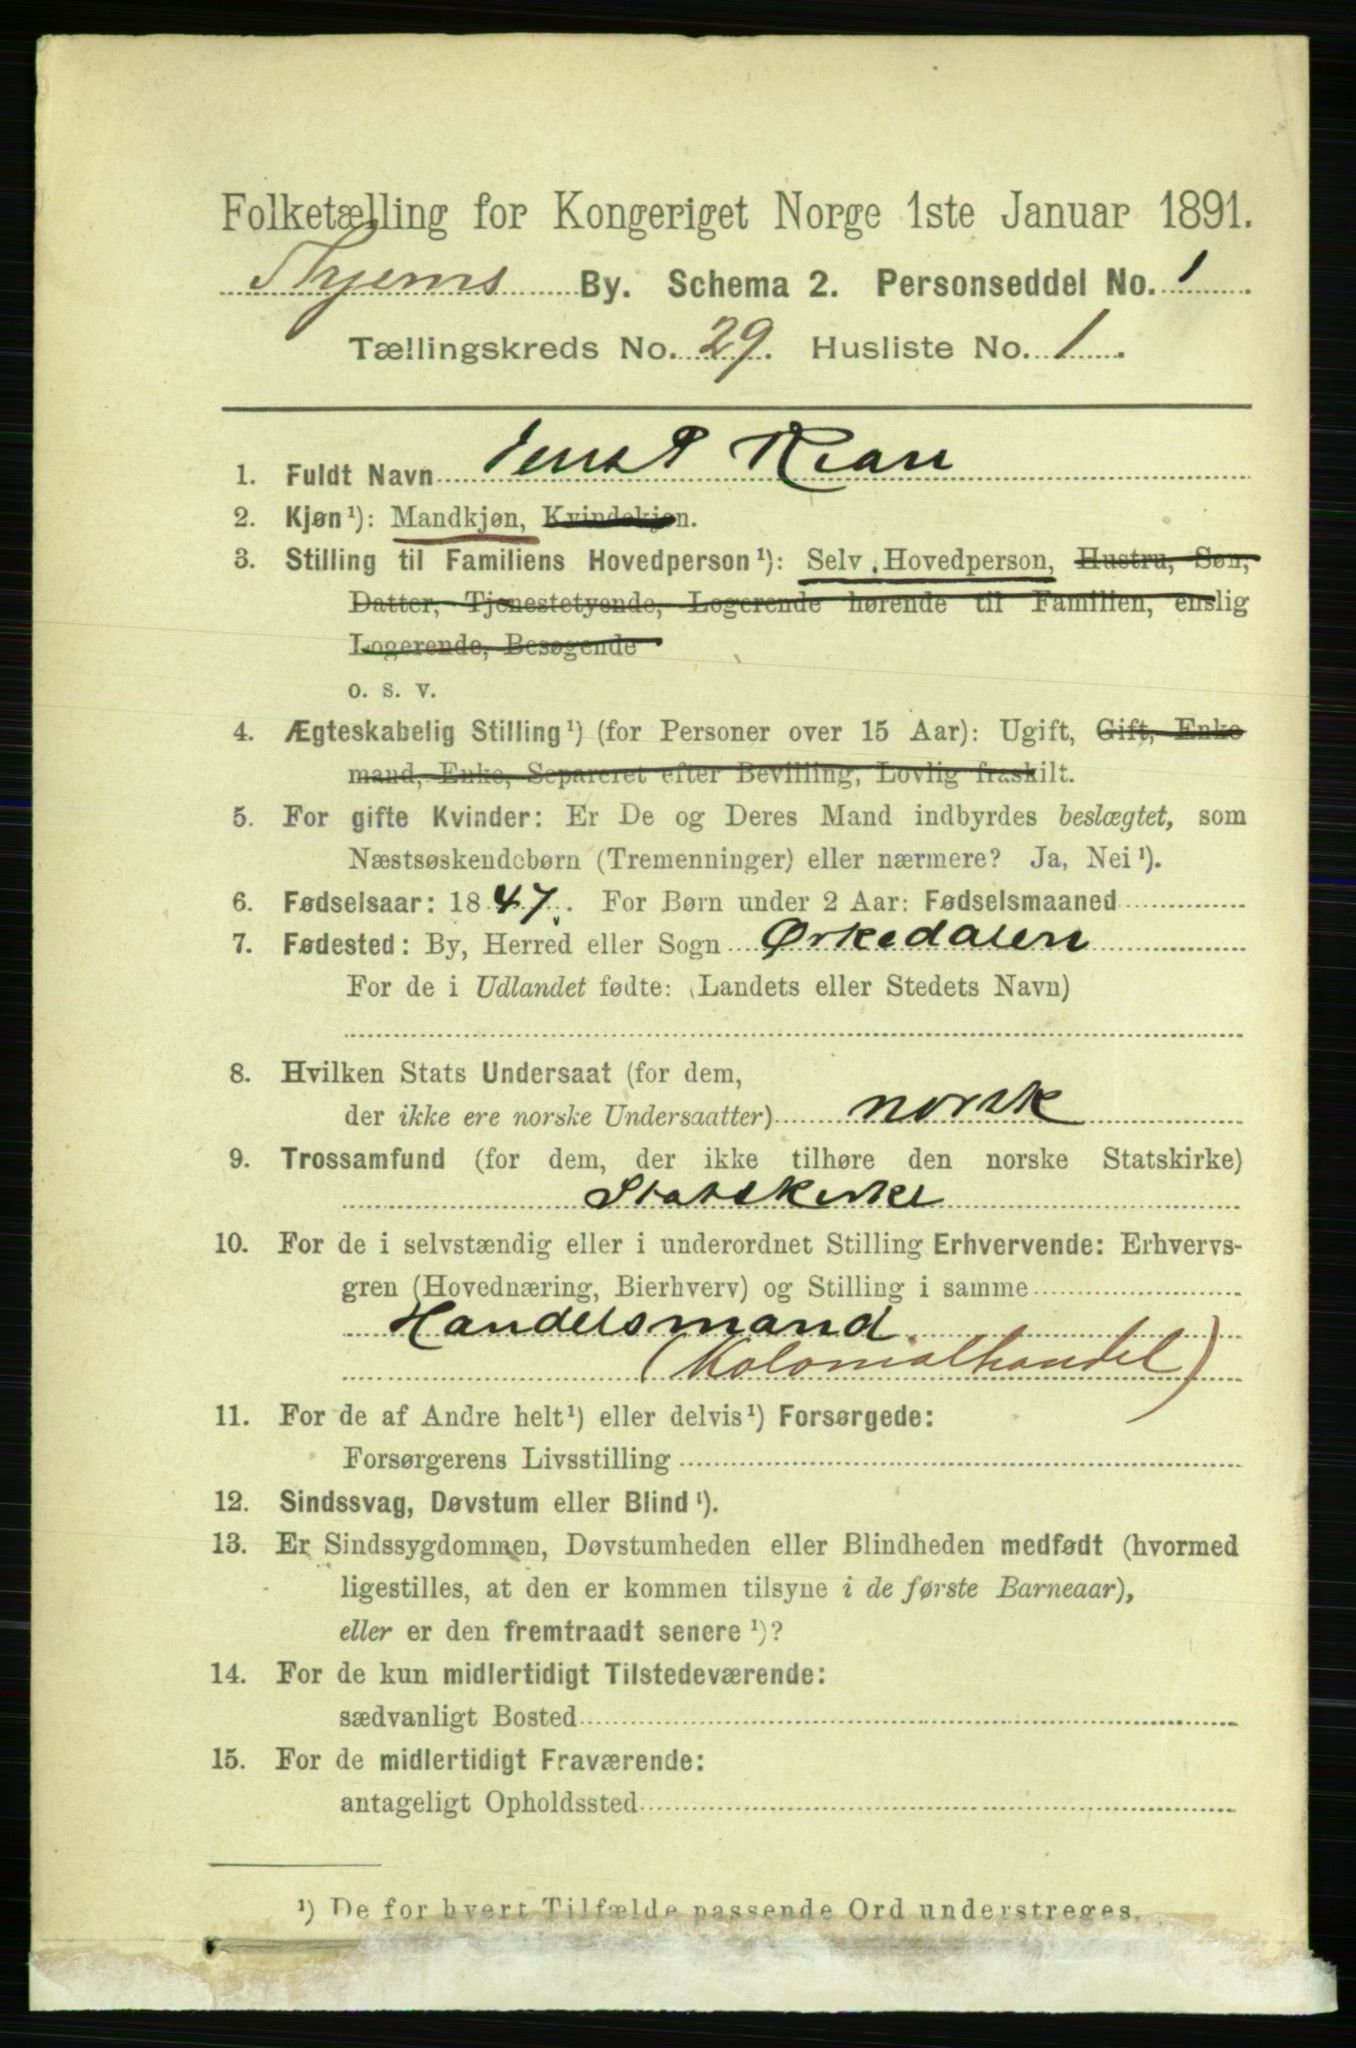 Folketælling for Kongeriget Norge 1ste Januar 1891.
Thjems By. Schema 2. Personseddel No. 1
Tællingskreds No. 29. Husliste No. 1.
1. Fuldt Navn Jens P Rian
2. Kjøn¹): Mandkjøn, Kvindekjøn.
3. Stilling til Familiens Hovedperson¹): Selv Hovedperson, Hustru, Søn,
Datter, Tjenestetyende, Logerende hørende til Familien, enslig
Logerende, Besøgende
o. s. v.
4. Ægteskabelig Stilling¹) (for Personer over 15 Aar): Ugift, Gift, Enke
mand, Enke, Separeret efter Bevilling, Lovlig fraskilt.
5. For gifte Kvinder: Er De og Deres Mand indbyrdes beslægtet, som
Næstsøskendebørn (Tremenninger) eller nærmere? Ja, Nei¹).
6. Fødselsaar: 1847. For Børn under 2 Aar: Fødselsmaaned
7. Fødested: By, Herred eller Sogn Ørkedalen
For de i Udlandet fødte: (Landets eller Stedets Navn)
8. Hvilken Stats Undersaat (for dem,
der ikke ere norske Undersaatter) norsk
9. Trossamfund (for dem, der ikke tilhøre den norske Statskirke)
Statskirke
10. For de i selvstændig eller i underordnet Stilling Erhvervende: Erhvervs-
gren (Hovednæring, Bierhverv) og Stilling i samme
Handelsmand.
(Kolonialhandel)
11. For de af Andre helt¹) eller delvis¹) Forsørgede:
Forsørgerens Livsstilling
12. Sindssvag, Døvstum eller Blind¹).
13. Er Sindssygdommen, Døvstumheden eller Blindheden medfødt (hvormed
ligestilles, at den er kommen tilsyne i de første Barneaar),
eller er den fremtraadt senere¹)?
14. For de kun midlertidigt Tilstedeværende:
sædvanligt Bosted
15. For de midlertidigt Fraværende:
antageligt Opholdssted
¹) De for hvert Tilfælde passende Ord understreges.